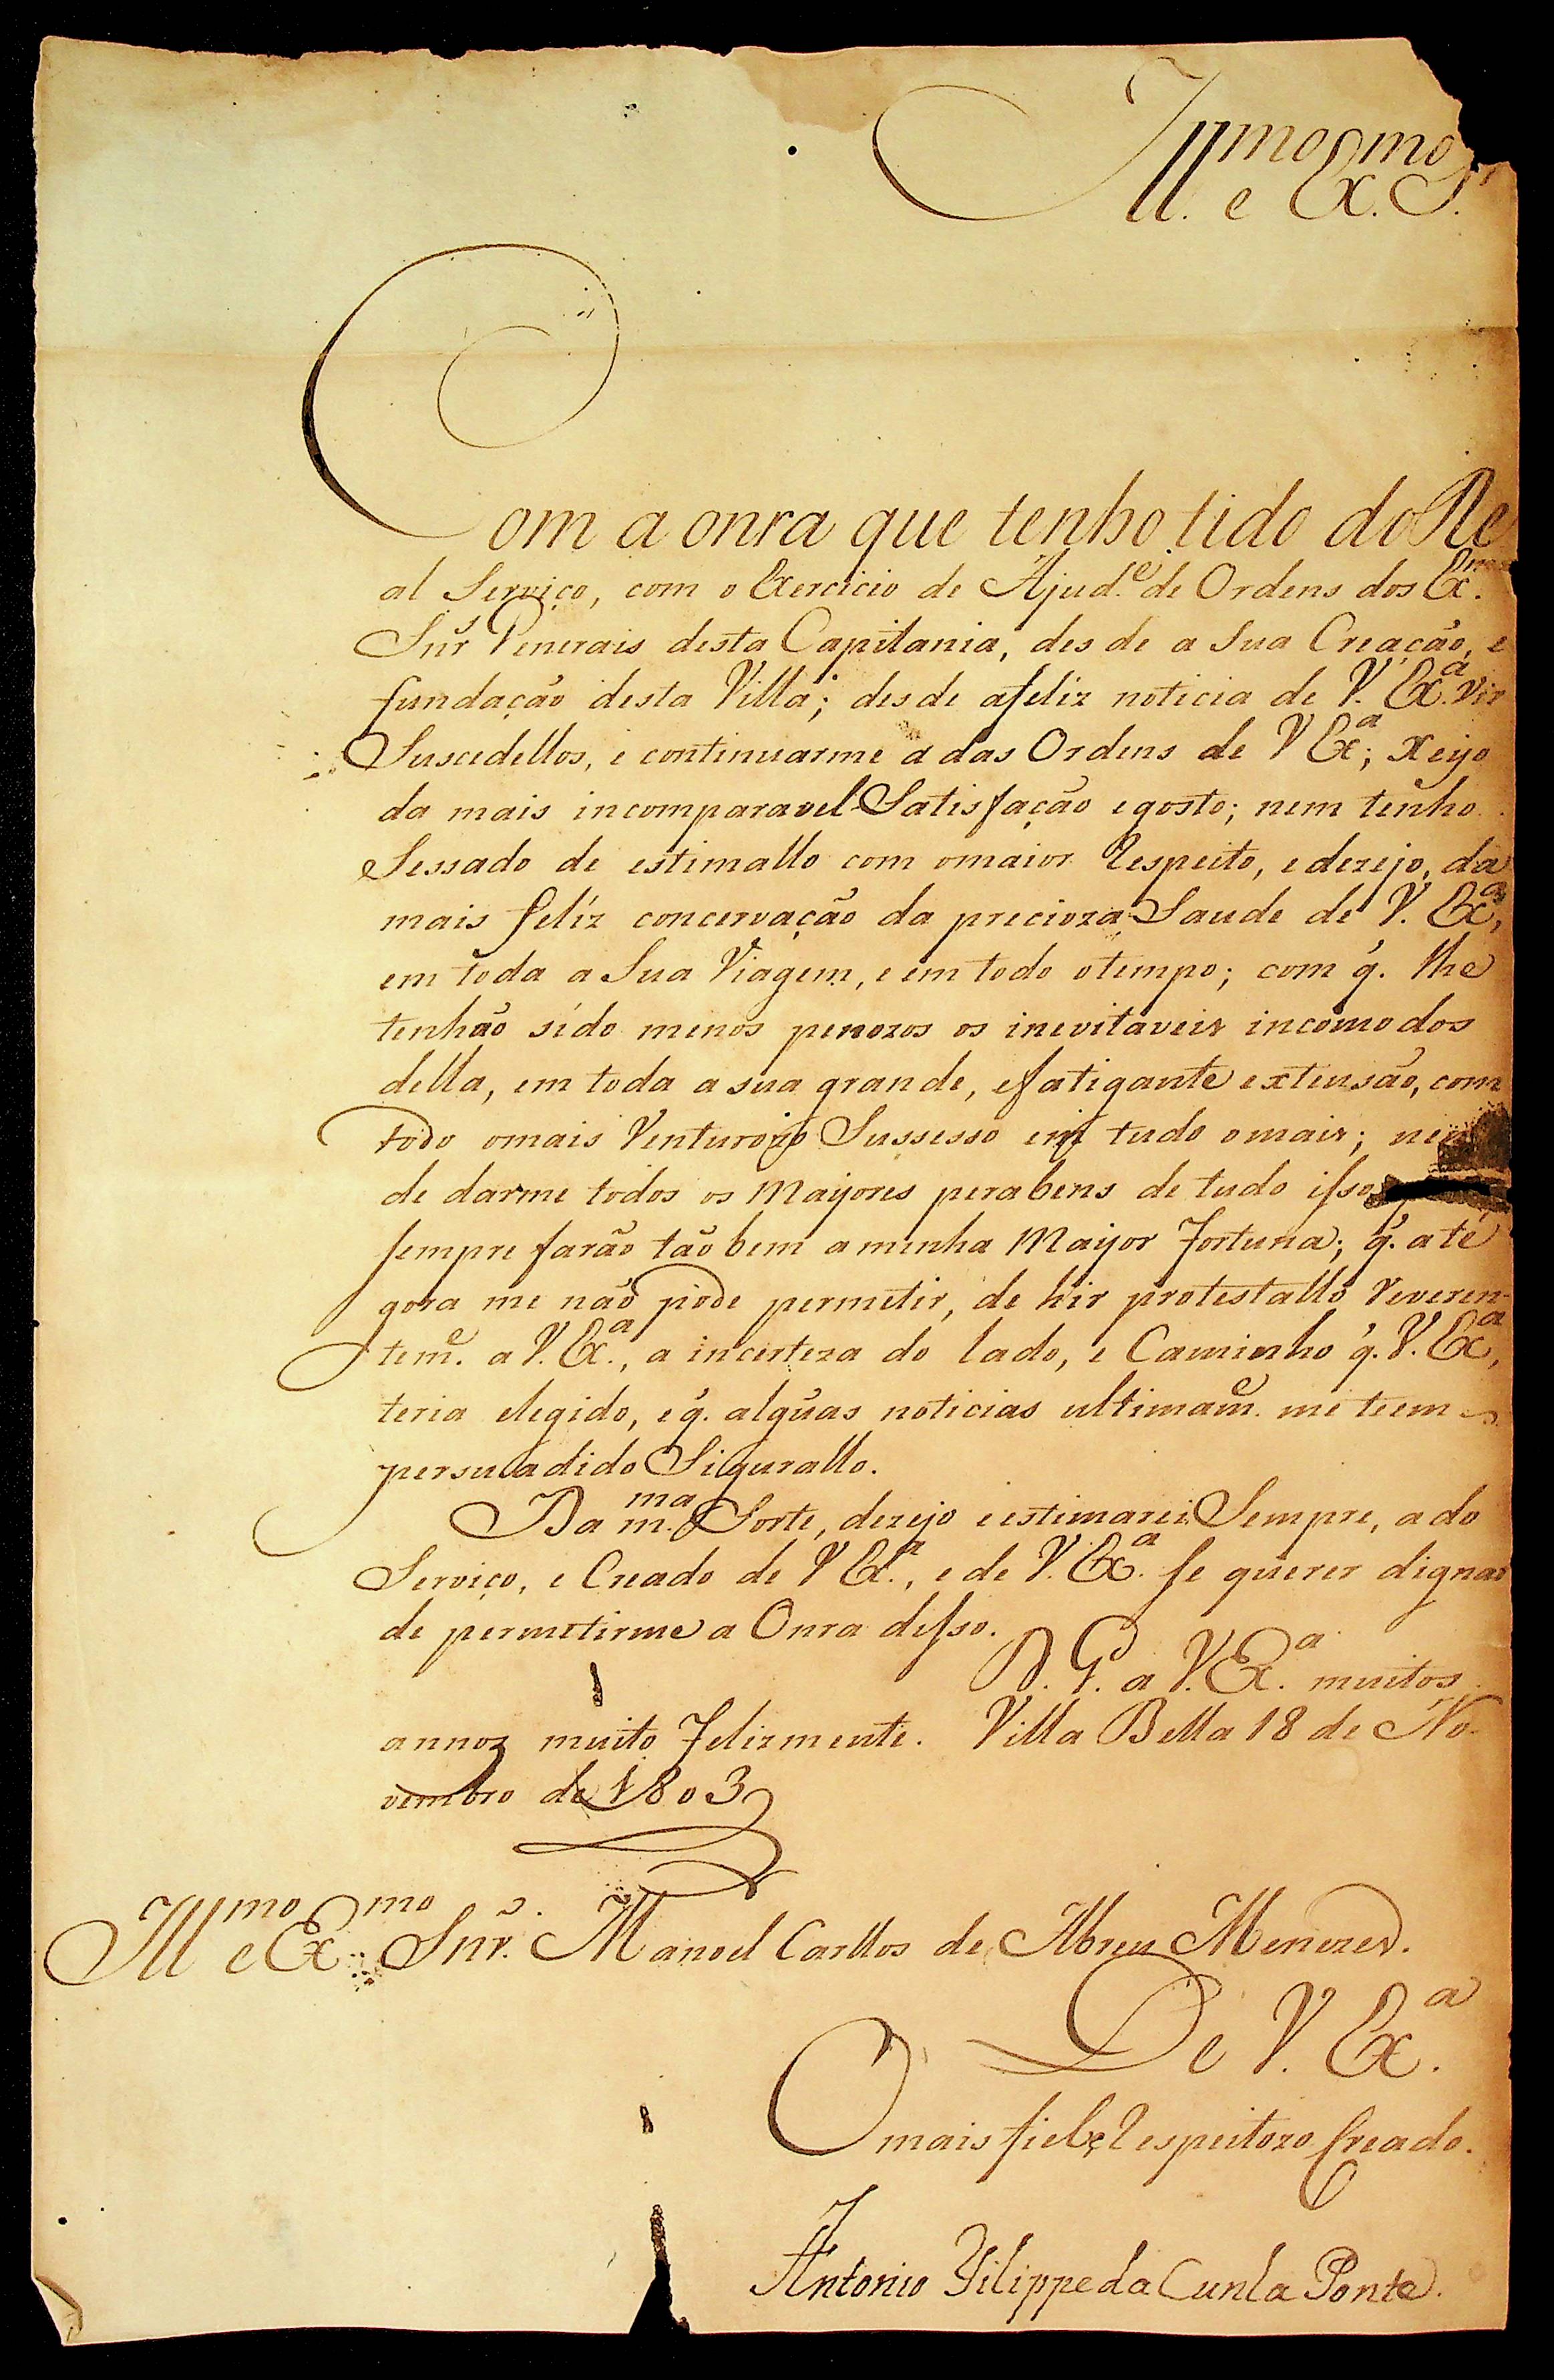 Ill.mo e Ex.mo S.r
Com a onra que tenho tido do Re
al Serviço, com o Exercicio de Ajud.e de Ordens dos Ex.mos
Snr.s Generais desta Capitania, des de a Sua Creação, e
fundação desta Villa; desde afeliz noticia de V. Ex.a vir
Suscedellos, e continuarme a das Ordens de V Ex.a;
da mais incomparavel Satisfação egosto; nem tenho
Sessado de estimallo com omaior Respeito, e dezejo, da
mais felíz concervação da precioza Saude de V. Ex.a,
em toda a Sua Viagem, e em todo otempo; com q̃. lhe
tenhão sído menos penozos os inevitaveis incomodos
della, em toda a sua grande, efatigante extensão, com
todo omais Venturozo Sussesso em tudo omais;
de darme todos os Mayores perabens de tudo isso,
sempre farão tão bem aminha Mayor Fortuna; q̃. até
gora me não pode permetir, de hir protestallo Reveren-
tem.e a V. Ex.a, a incerteza do lado, e Caminho q̃. V. Ex.a,
teria elegido, eq̃. algũas noticias ultimam.e me teem
persuadido Sigurallo.
Da m.ma Sorte, dezejo e estimarei Sempre, a do
Serviço, e Creado de V Ex.a, e de V. Ex.a se querer dignar
de permetirme a Onra disso.
D. G. a V. Ex.a muitos
annos muito Felizmente. Villa Bella 18 de No-
vembro de 1803
Ill.mo e Ex.mo Snr. Manoel Carllos de Abreu Menezes.
De V. Ex.a
O mais fiel, e Respeitozo Creado.
Antonio Filippe da Cunha Ponte.